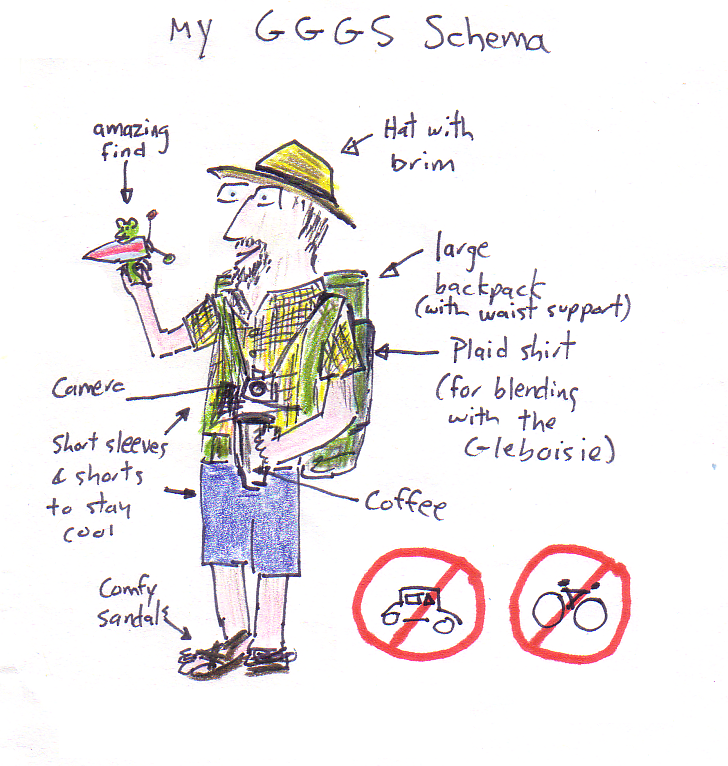 My GGGS Schema
amazing
find
Hat with
brim
large
backpack
(with waist support)
Plaid shirt
(for blending
with the
Gleboisie)
Camera
Short sleeves
& shorts
to stay
cool
Coffee
Comfy
sandals